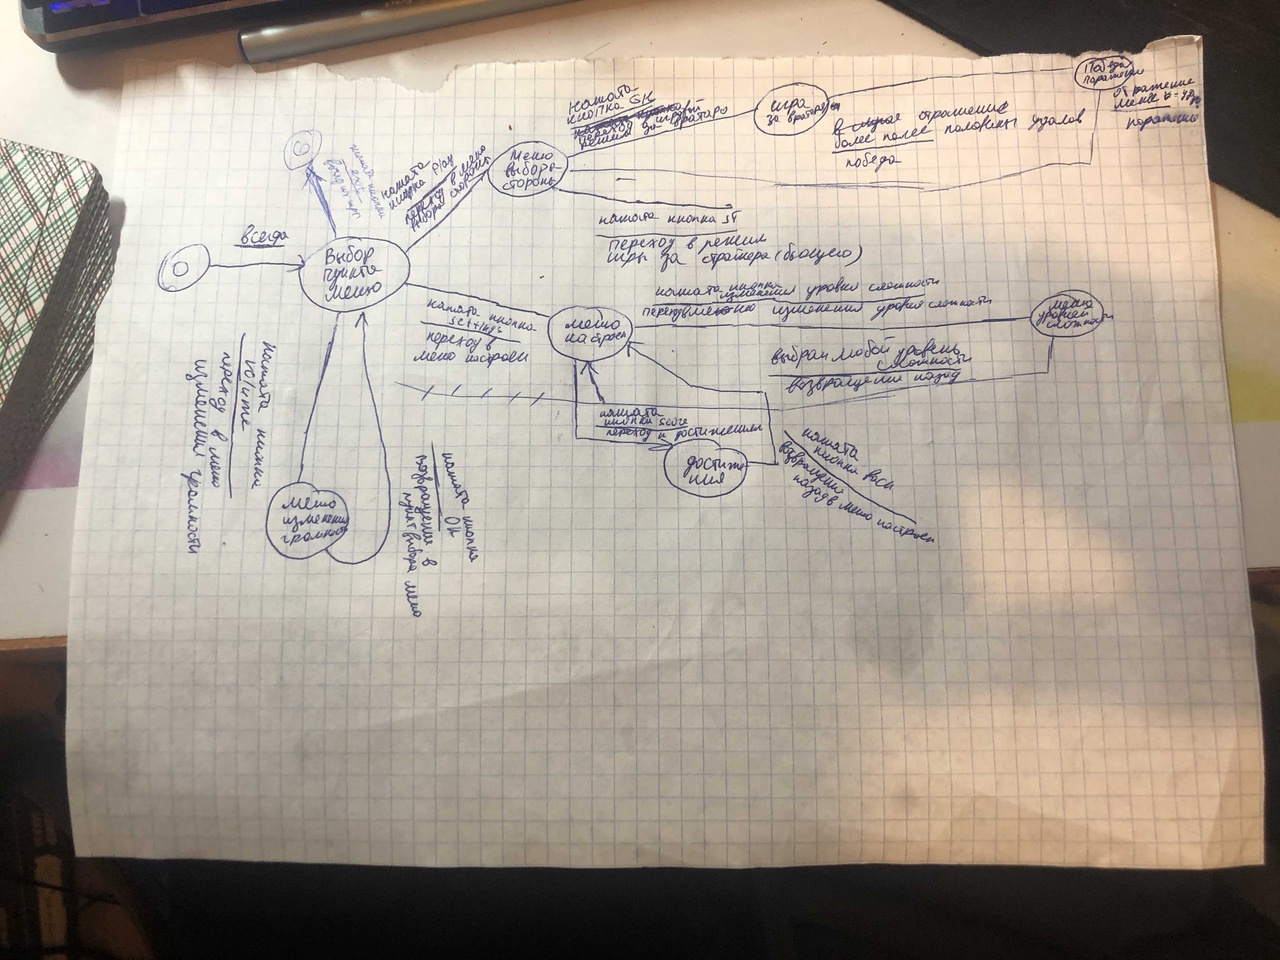 всегда
Выбор
пункта
меню
нажата
кнопка Play
переход в меню
выбора стороны
Меню
выбора
стороны
нажата
кнопка GK
переход
за вратаря
игра
за вратаря
Победа
поражение
отражение
менее
поражение
в случае отражение
более полее половины ударов
победа
нажата кнопка ST
переход в режим
игры за страйкера (бьющего)
нажата кнопка
settings
переход в
меню настроек
меню
настроек
нажата кнопка
изменения уровня сложности
переход в меню изменения уровня сложности
меню
уровней
сложности
выбран любой уровень
сложности
возвращение назад
нажата
кнопка score
переход к достижениям
достиже
ния
нажата
кнопка back
возвращение
назад в меню настроек
нажата кнопка
volume
переход в меню
изменения громкости
меню
изменения
громкости
нажата кнопка
OK
возвращение в
пункт выбора меню